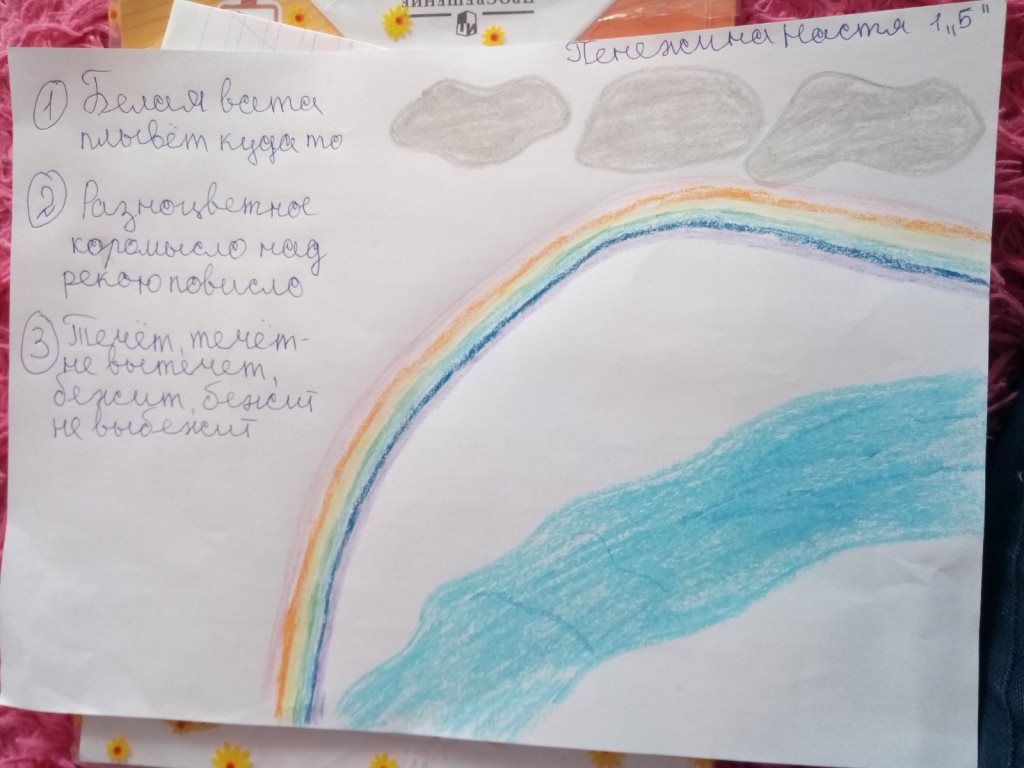 ПРОСВЕЩЕНИЕ
Пенежина Настя 1 „Б"
1 Белая вата
плывёт куда то
2 Разноцветное
коромысло над
рекою повисло
3 Течёт, течёт-
не вытечет,
бежит, бежит
не выбежит